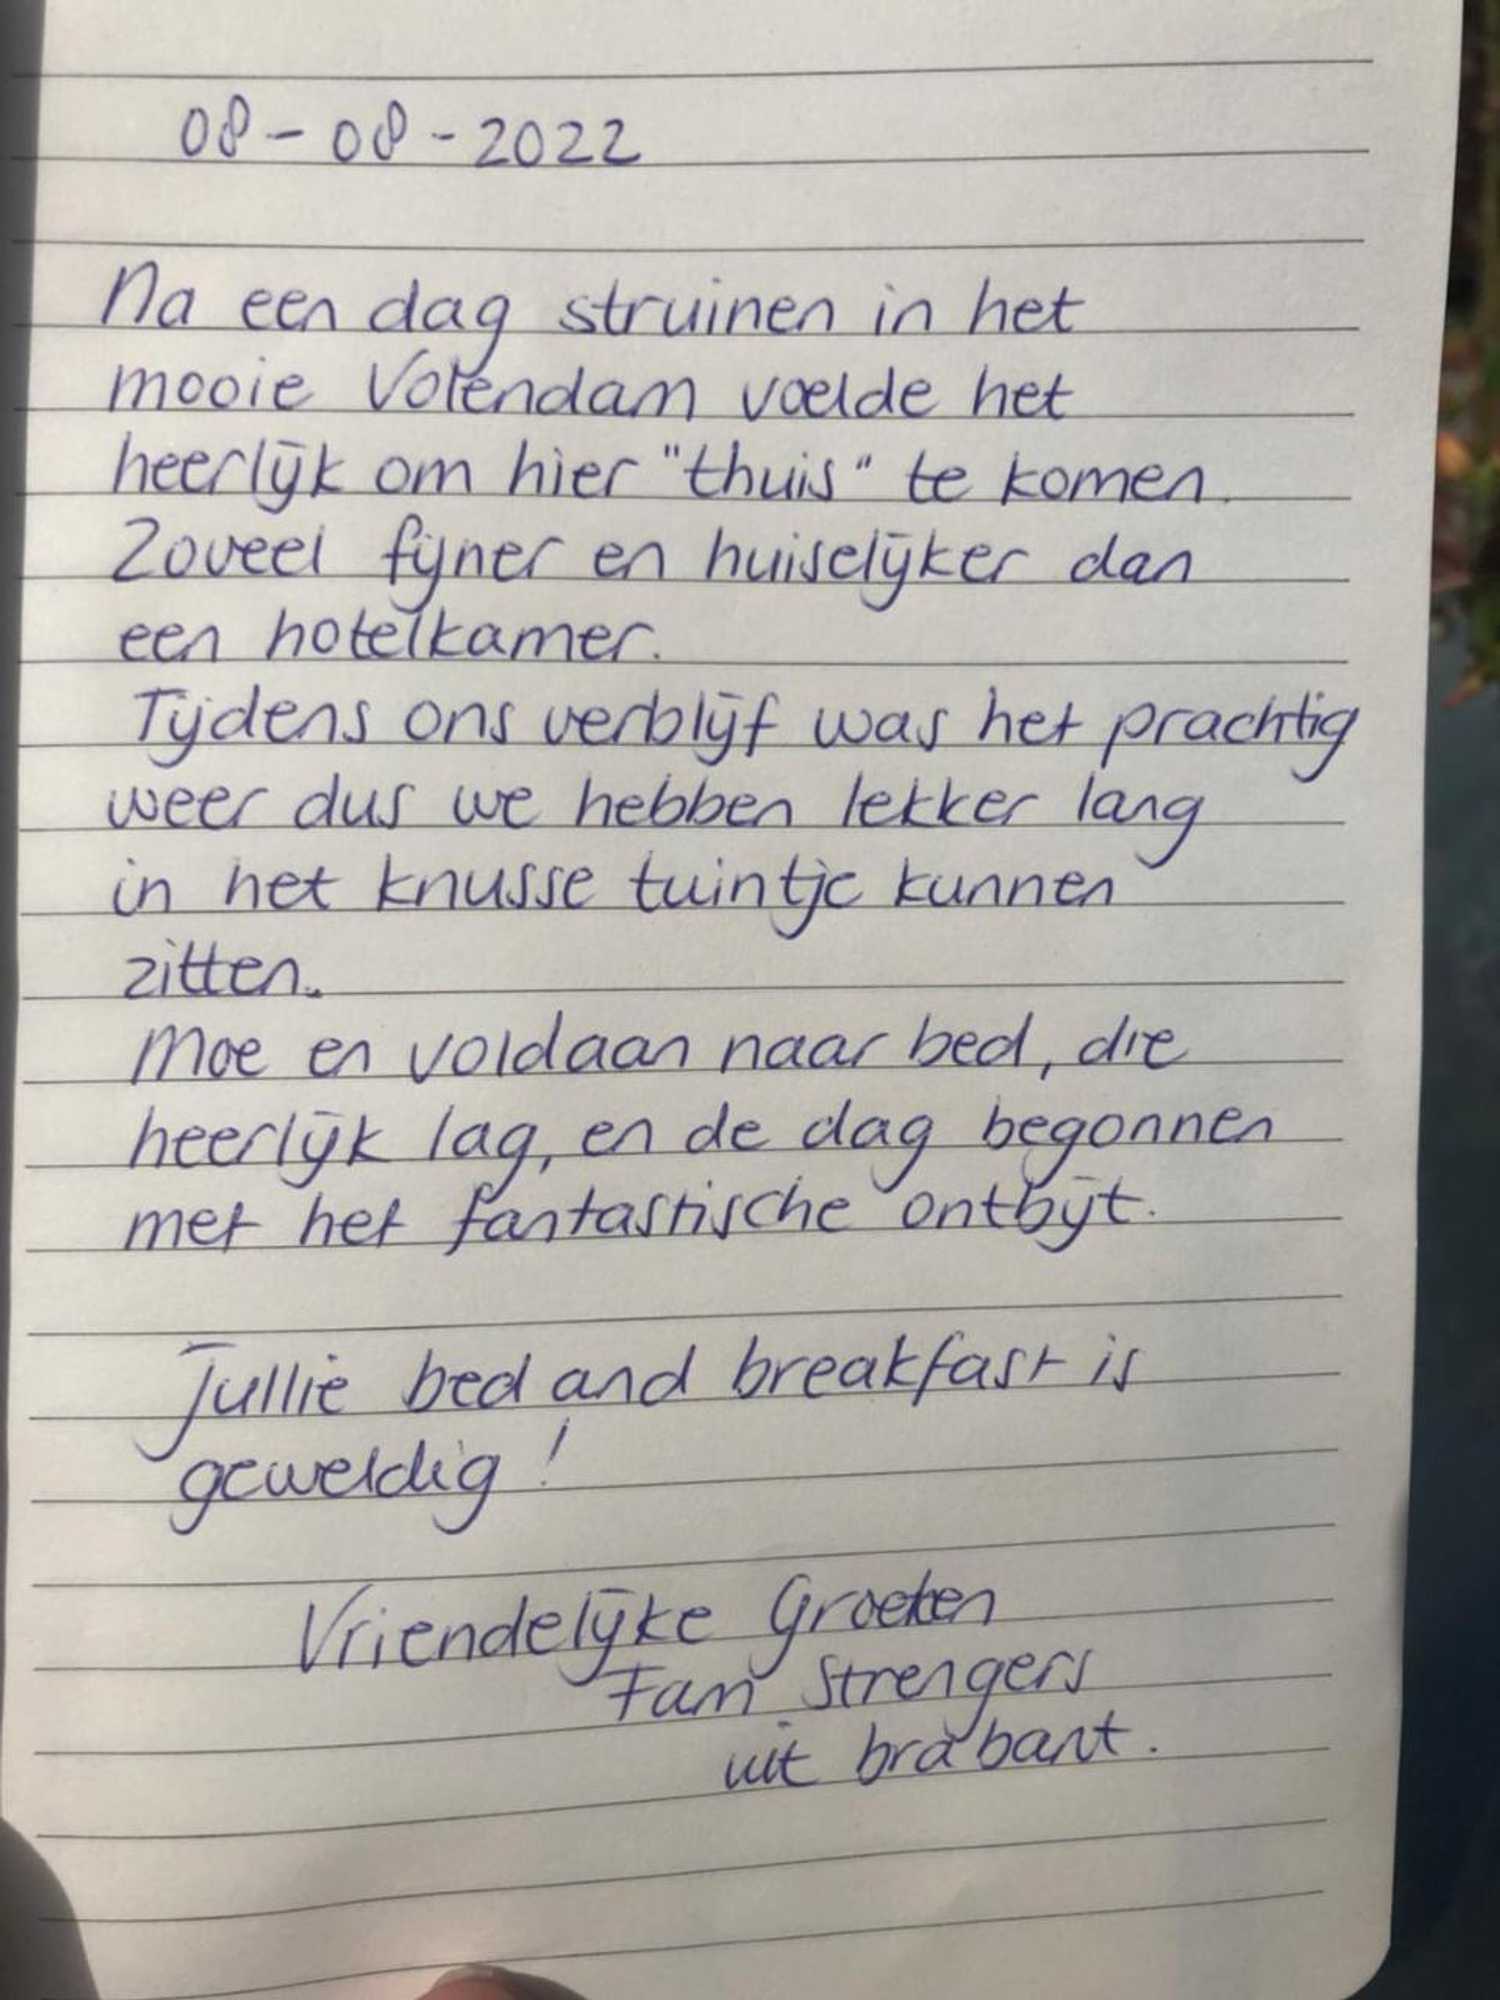 08-08-2022
Na een dag struinen in het
mooie Volendam voelde het
heerlijk om hier "thuis" te komen.
Zoveel fijner en huiselijker dan
een hotelkamer.
Tijdens ons verblijf was het prachtig
weer dus we hebben lekker lang
in het knusse tuintje kunnen
zitten.
Moe en voldaan naar bed, die
heerlijk lag, en de dag begonnen
met het fantastische ontbijt.
Jullie bed and breakfast is
geweldig!
Vriendelijke Groeten
Fam Strengers
uit brabant.